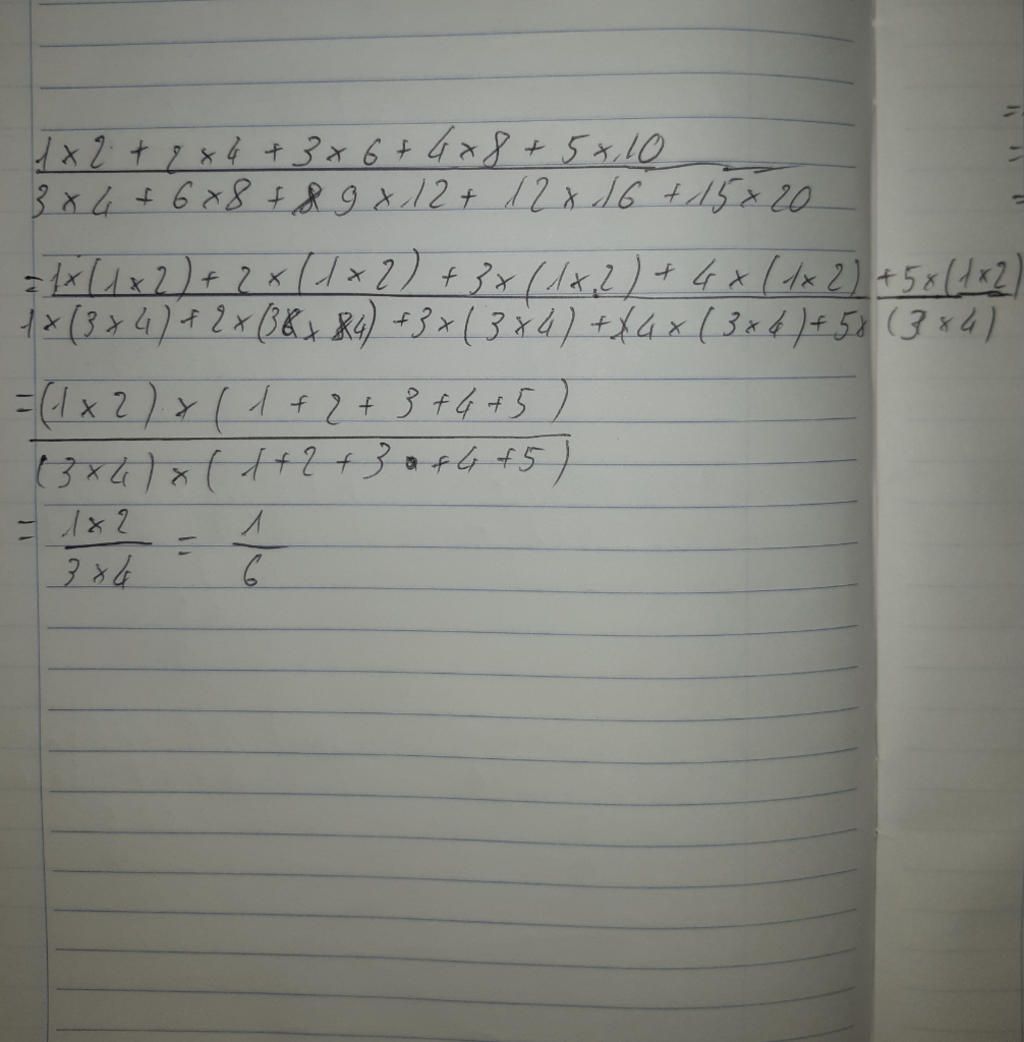 1 × 2 + 2 × 4 + 3 × 6 + 4 × 8 + 5 × 10
3 × 4 + 6 × 8 + 9 × 12 + 12 × 16 + 15 × 20
= 1 × (1 × 2) + 2 × (1 × 2) + 3 × (1 × 2) + 4 × (1 × 2) + 5 × (1 × 2)
1 × (3 × 4) + 2 × (3 × 4) + 3 × (3 × 4) + 4 × (3 × 4) + 5 × (3 × 4)
= (1 × 2) × (1 + 2 + 3 + 4 + 5)
(3 × 4) × (1 + 2 + 3 + 4 + 5)
= 1 × 2 = 1
3 × 4 6
=
=
=